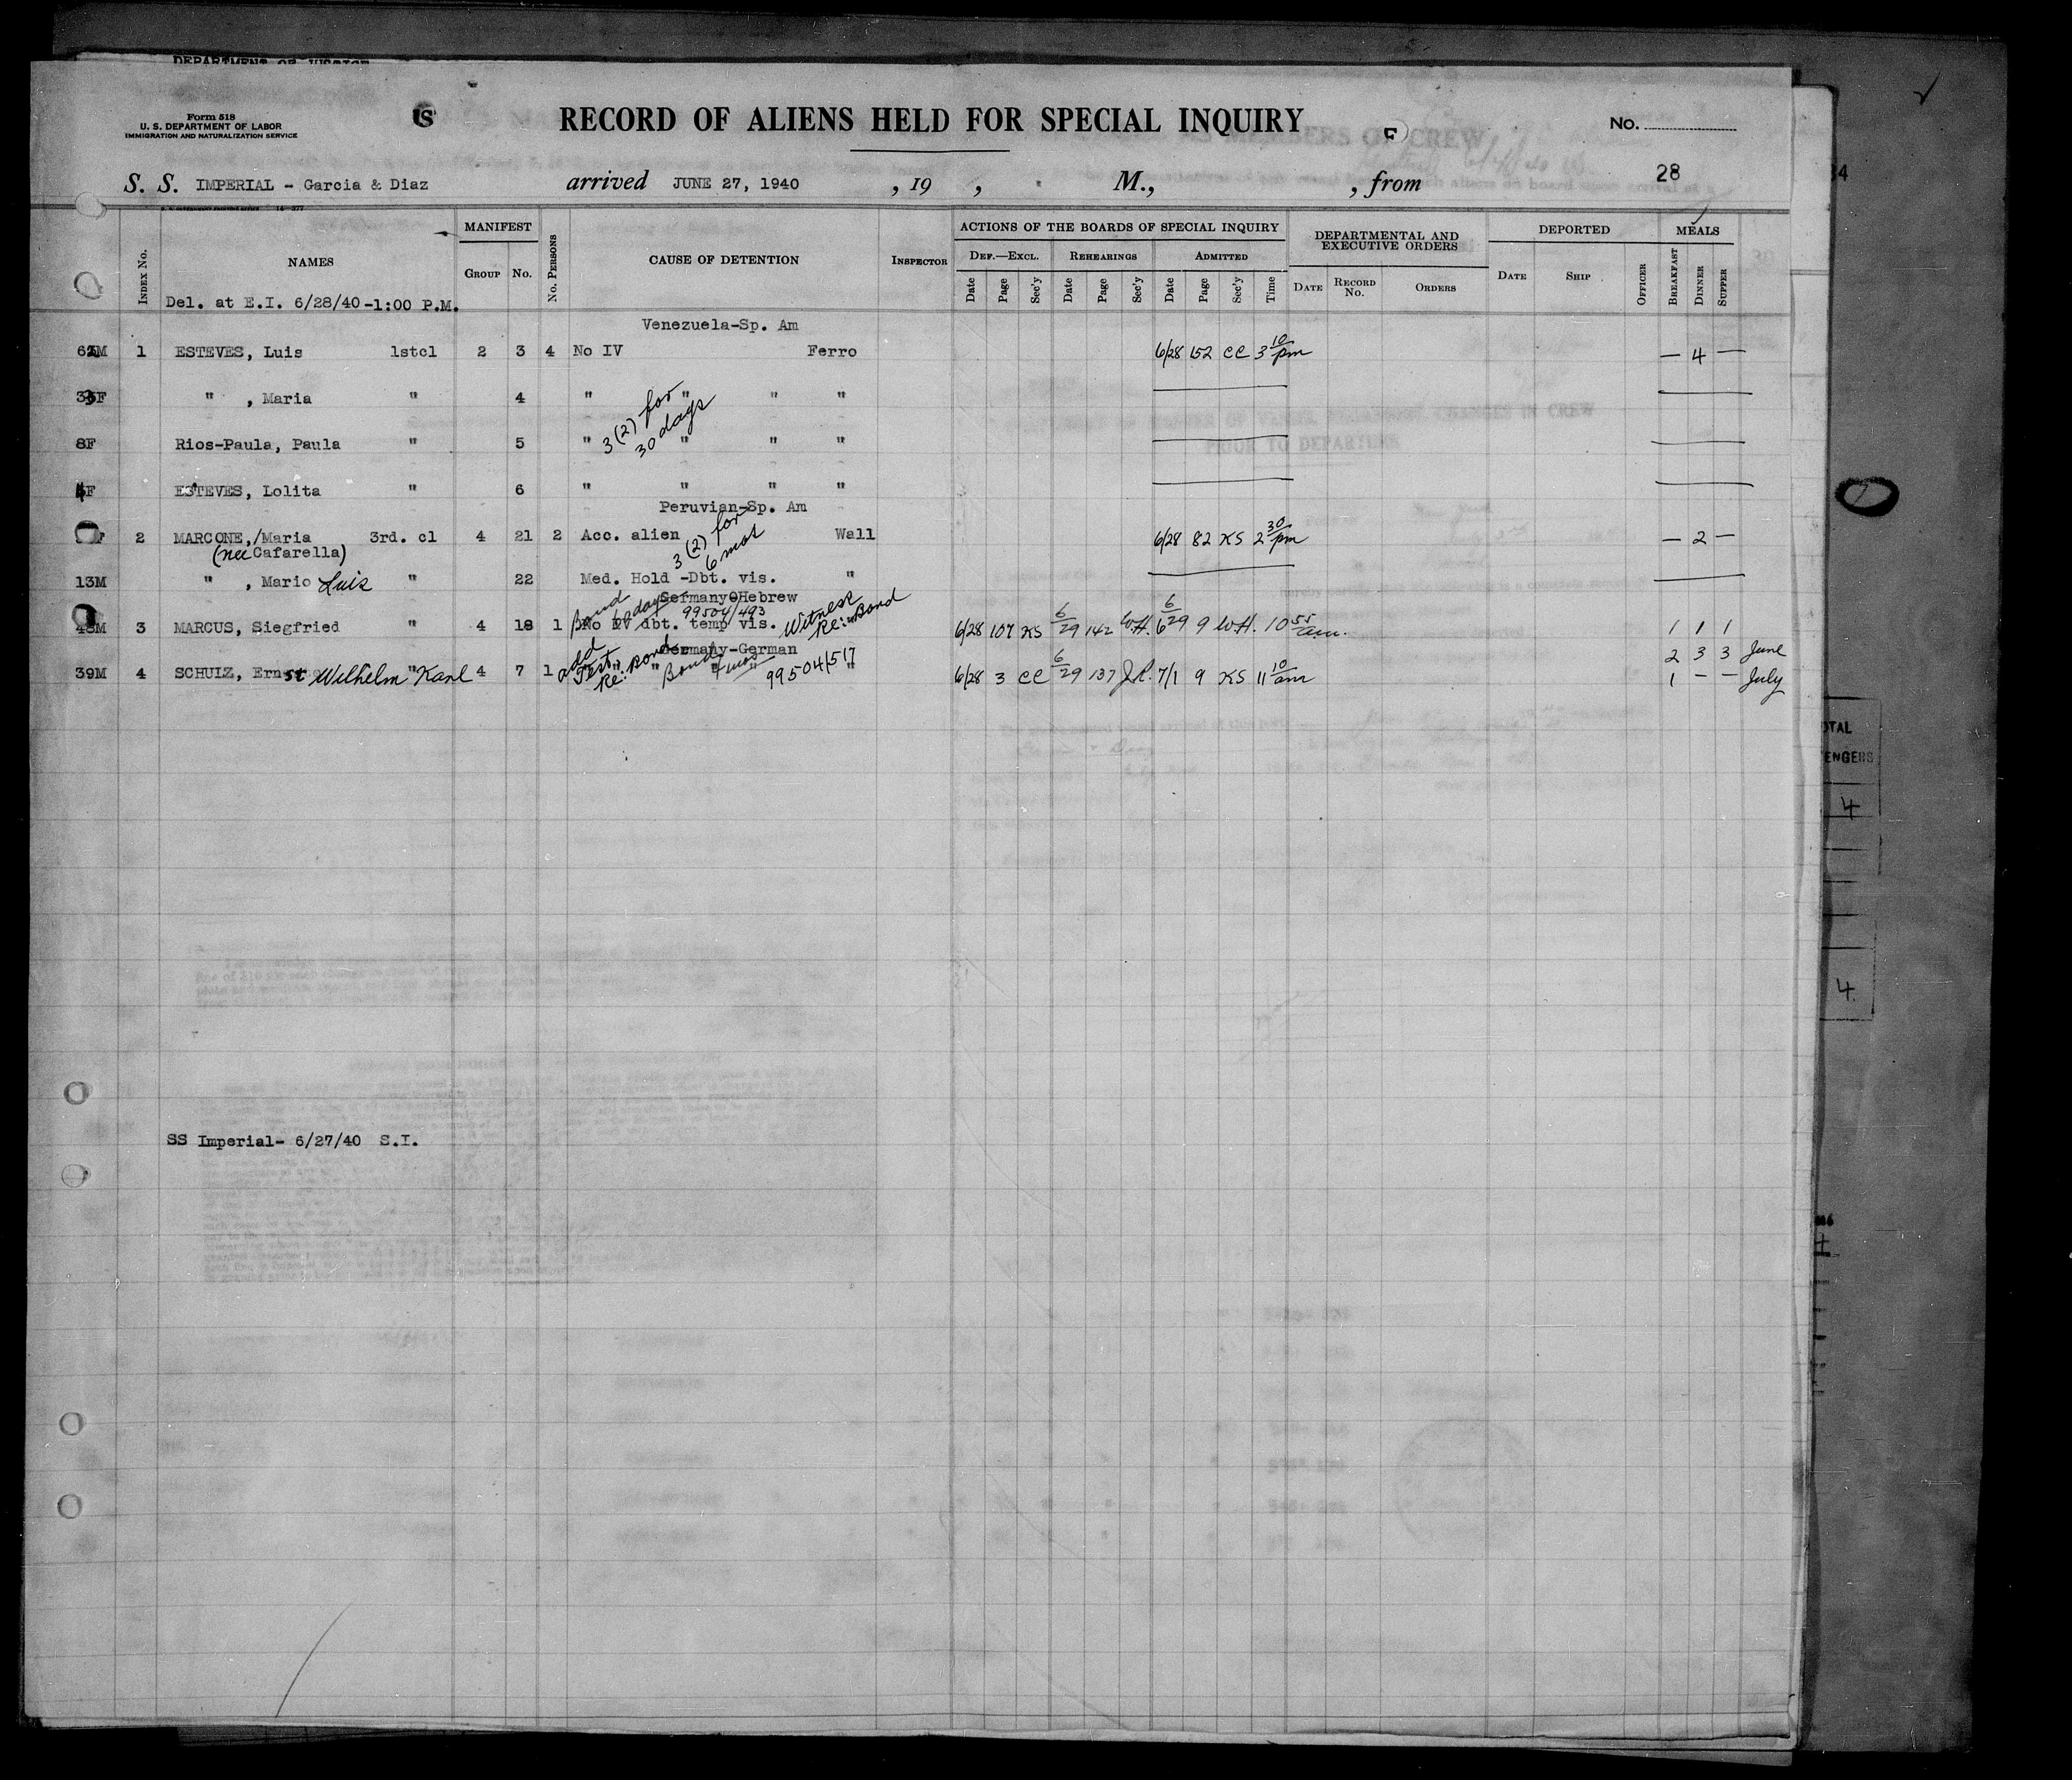 DEPARTMENT OF JUSTICE
Form 518
U. S. DEPARTMENT OF LABOR
IMMIGRATION AND NATURALIZATION SERVICE
RECORD OF ALIENS HELD FOR SPECIAL INQUIRY
No.
28
S. S. IMPERIAL - Garcia & Diaz arrived JUNE 27, 1940 , 19 , M., , from
INDEX No. NAMES MANIFEST GROUP No. No. PERSONS CAUSE OF DETENTION INSPECTOR
ACTIONS OF THE BOARDS OF SPECIAL INQUIRY
DEF.—EXCL. REHEARINGS ADMITTED
Date Page Sec'y Date Page Sec'y Date Page Sec'y Time
DEPARTMENTAL AND EXECUTIVE ORDERS
DATE RECORD No. ORDERS
DEPORTED
DATE SHIP OFFICER
MEALS
BREAKFAST DINNER SUPPER
Del. at E.I. 6/28/40-1:00 P.M.
Venezuela-Sp. Am
1 ESTEVES, Luis 1stcl 2 3 4 No IV Ferro 6/28 152 CC 3 10 pm — 4 —
" , Maria " 4 " " " "
3(2) for 30 days
8F Rios-Paula, Paula " 5 " " " "
ESTEVES, Lolita " 6 " " " "
Peruvian-Sp. Am
2 MARCONE,/Maria 3rd. cl 4 21 2 Acc. alien Wall 6/28 82 KS 2 30 pm — 2 —
(nee Cafarella)
3(2) for 6 mos
13M " , Mario Luis " 22 Med. Hold -Dbt. vis. "
Germany Hebrew
Bond 60 days 99504/493 Witness Re: Bond
48M 3 MARCUS, Siegfried " 4 18 1 No IV dbt. temp vis. 6/28 107 KS 6/29 142 W.H. 6/29 9 W.H. 10 55 am. 1 1 1
Germany-German
add Test. Re: Bond Bond 99504/517
39M 4 SCHULZ, Ernst Wilhelm Karl " 4 7 1 " " " " 6/28 3 CC 6/29 137 J.R. 7/1 9 KS 11 10 am
2 3 3 June
1 - - July
SS Imperial- 6/27/40 S.I.
OTAL
ENGERS
4
4